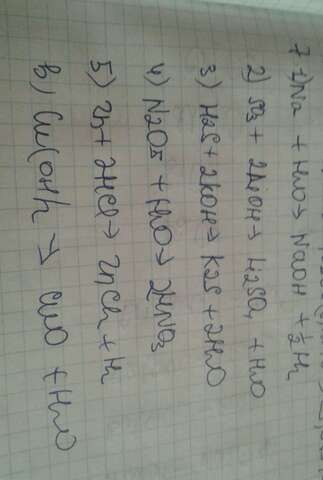 7 1) Na + H2O → NaOH + ½ H2
2) SO3 + 2LiOH → Li2SO4 + H2O
3) H2S + 2KOH → K2S + 2H2O
4) N2O5 + H2O → 2HNO3
5) Zn + 2HCl → ZnCl2 + H2
6) Cu(OH)2 → CuO + H2O